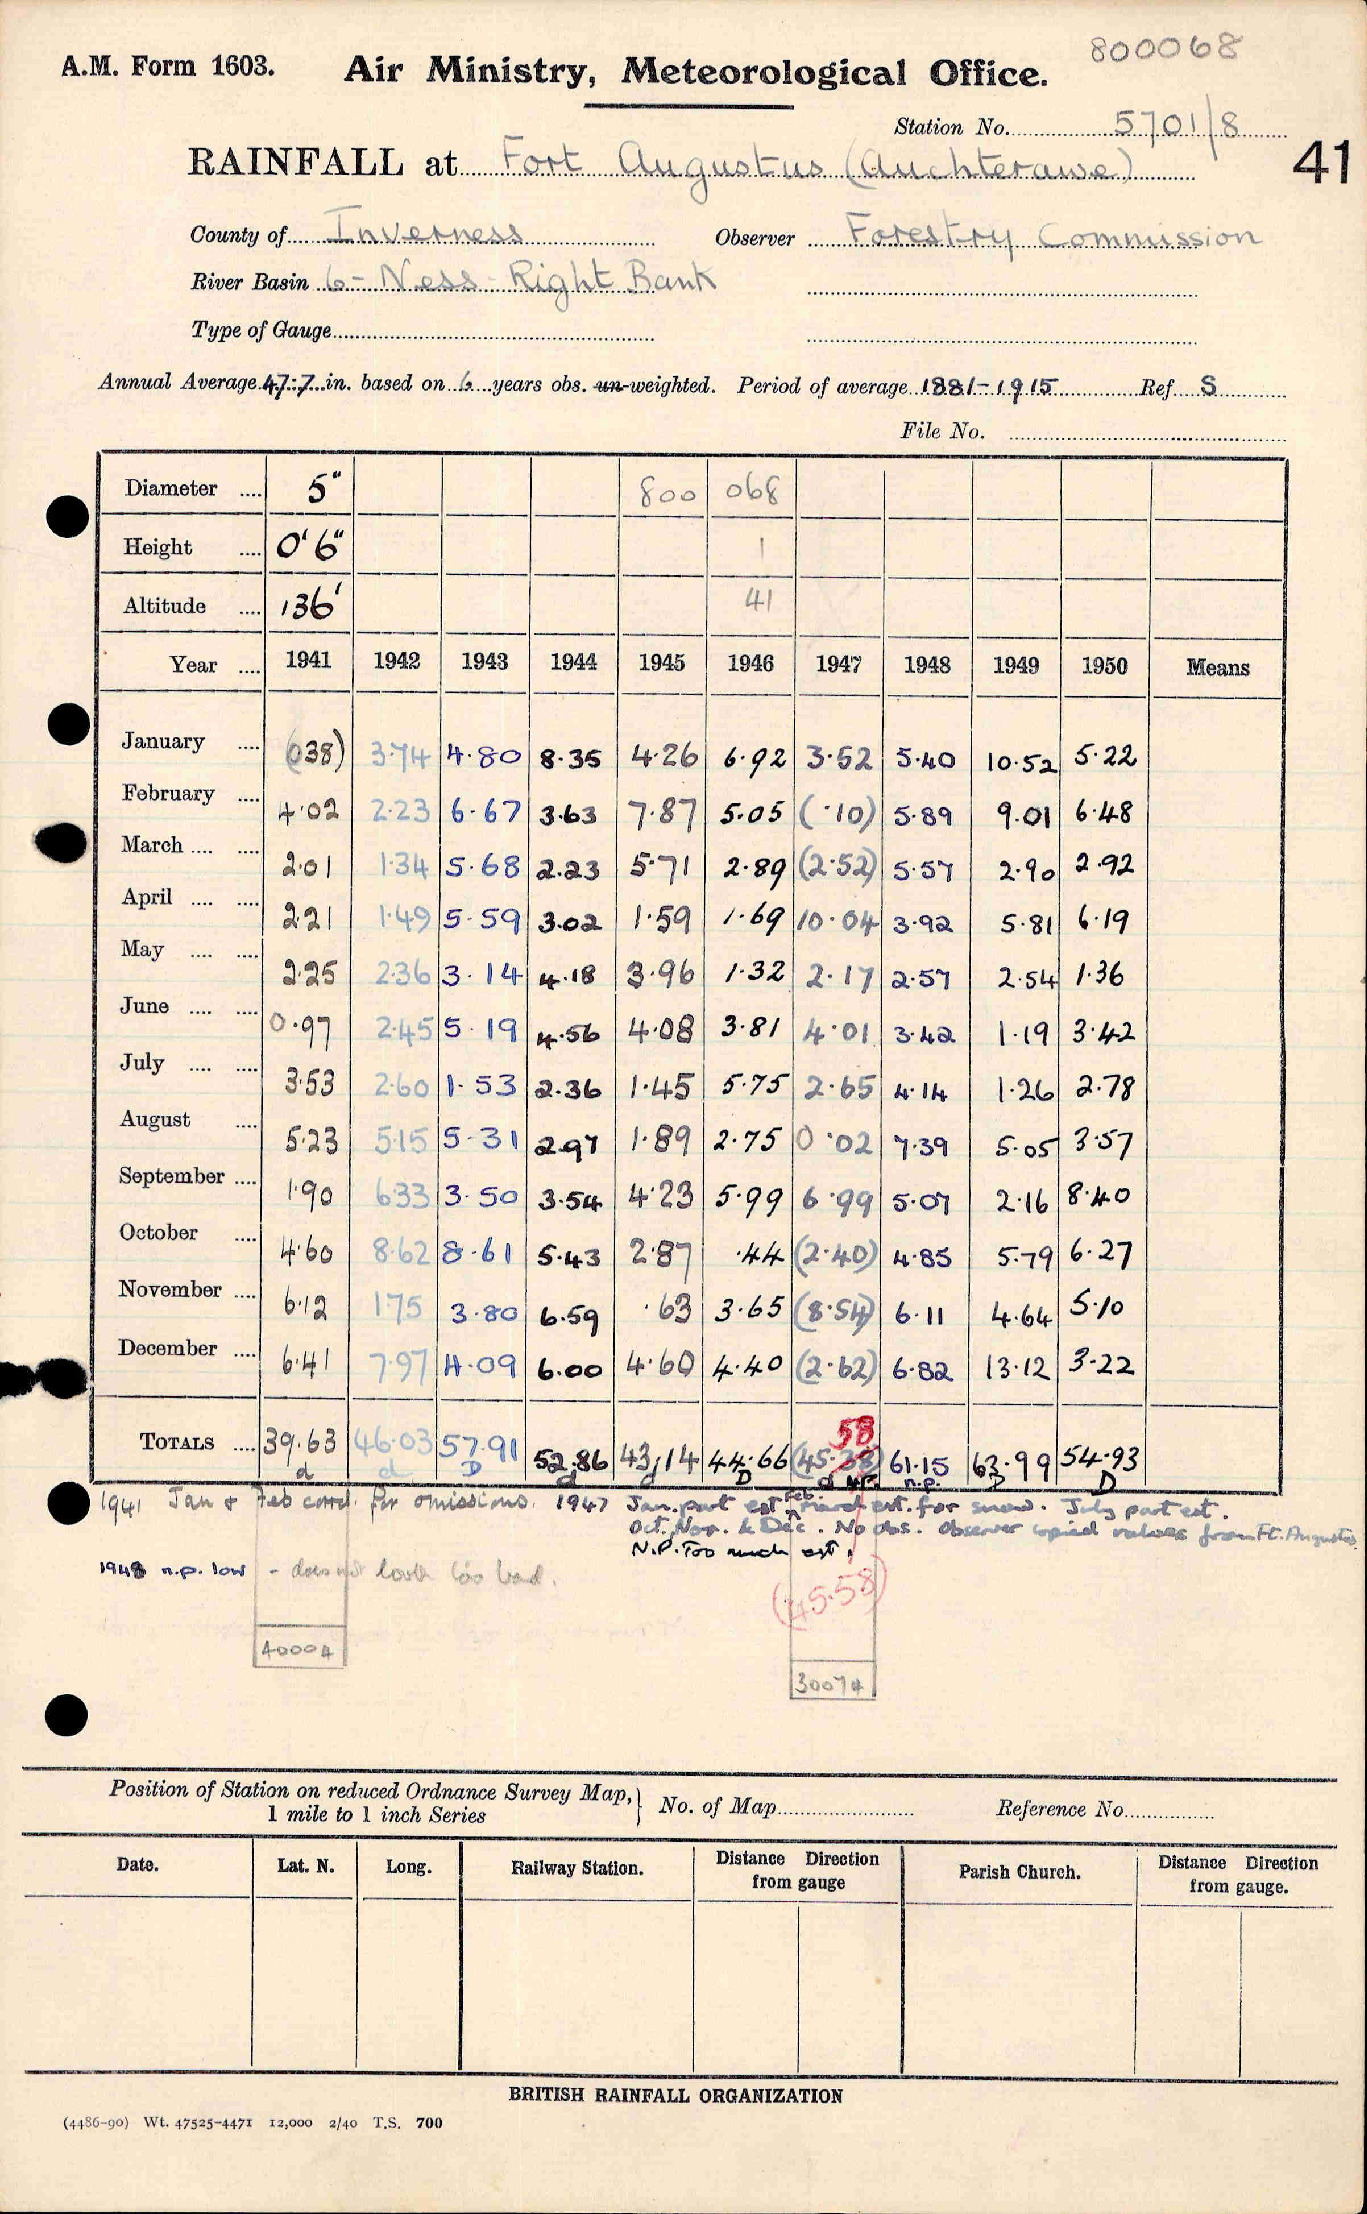 800068
A.M. Form 1603. Air Ministry, Meteorological Office.
Station No. 5701/8
41
RAINFALL at Fort Augustus (Auchterawe)
County of Inverness Observer Forestry Commission
River Basin 6 - Ness - Right Bank
Type of Gauge
Annual Average 47.7 in. based on 6 years obs. un-weighted. Period of average 1881-1915 Ref. S
File No.
Diameter 5" 800 068
Height 0'6" 1
Altitude 136' 41
Year 1941 1942 1943 1944 1945 1946 1947 1948 1949 1950 Means
January (038) 3.74 4.80 8.35 4.26 6.92 3.52 5.40 10.52 5.22
February 4.02 2.23 6.67 3.63 7.87 5.05 (.10) 5.89 9.01 6.48
March 2.01 1.34 5.68 2.23 5.71 2.89 (2.52) 5.57 2.90 2.92
April 2.21 1.49 5.59 3.02 1.59 1.69 10.04 3.92 5.81 6.19
May 2.25 2.36 3.14 4.18 3.96 1.32 2.17 2.57 2.54 1.36
June 0.97 2.45 5.19 4.56 4.08 3.81 4.01 3.42 1.19 3.42
July 3.53 2.60 1.53 2.36 1.45 5.75 2.65 4.14 1.26 2.78
August 5.23 5.15 5.31 2.97 1.89 2.75 0.02 7.39 5.05 3.57
September 1.90 6.33 3.50 3.54 4.23 5.99 6.99 5.07 2.16 8.40
October 4.60 8.62 8.61 5.43 2.87 .44 (2.40) 4.85 5.79 6.27
November 6.12 1.75 3.80 6.59 .63 3.65 (8.54) 6.11 4.64 5.10
December 6.41 7.97 4.09 6.00 4.60 4.40 (2.62) 6.82 13.12 3.22
58
TOTALS 39.63 46.03 57.91 52.86 43.14 44.66 (45.38) 61.15 63.99 54.93
d d D d d D d n.p. D D
1941 Jan & Feb corrd. for omissions. 1947 Jan. part est. Feb March est. for snow. July part est.
Oct, Nov. & Dec. No obs. Observer copied values from Ft. Augustus
N.P. Too much est.
1948 n.p. low - does not look too bad.
(45.58)
40004
30074
Position of Station on reduced Ordnance Survey Map, 1 mile to 1 inch Series No. of Map Reference No.
Date. Lat. N. Long. Railway Station. Distance Direction from gauge Parish Church. Distance Direction from gauge.
BRITISH RAINFALL ORGANIZATION
(4486-90) Wt. 47525-4471 12,000 2/40 T.S. 700